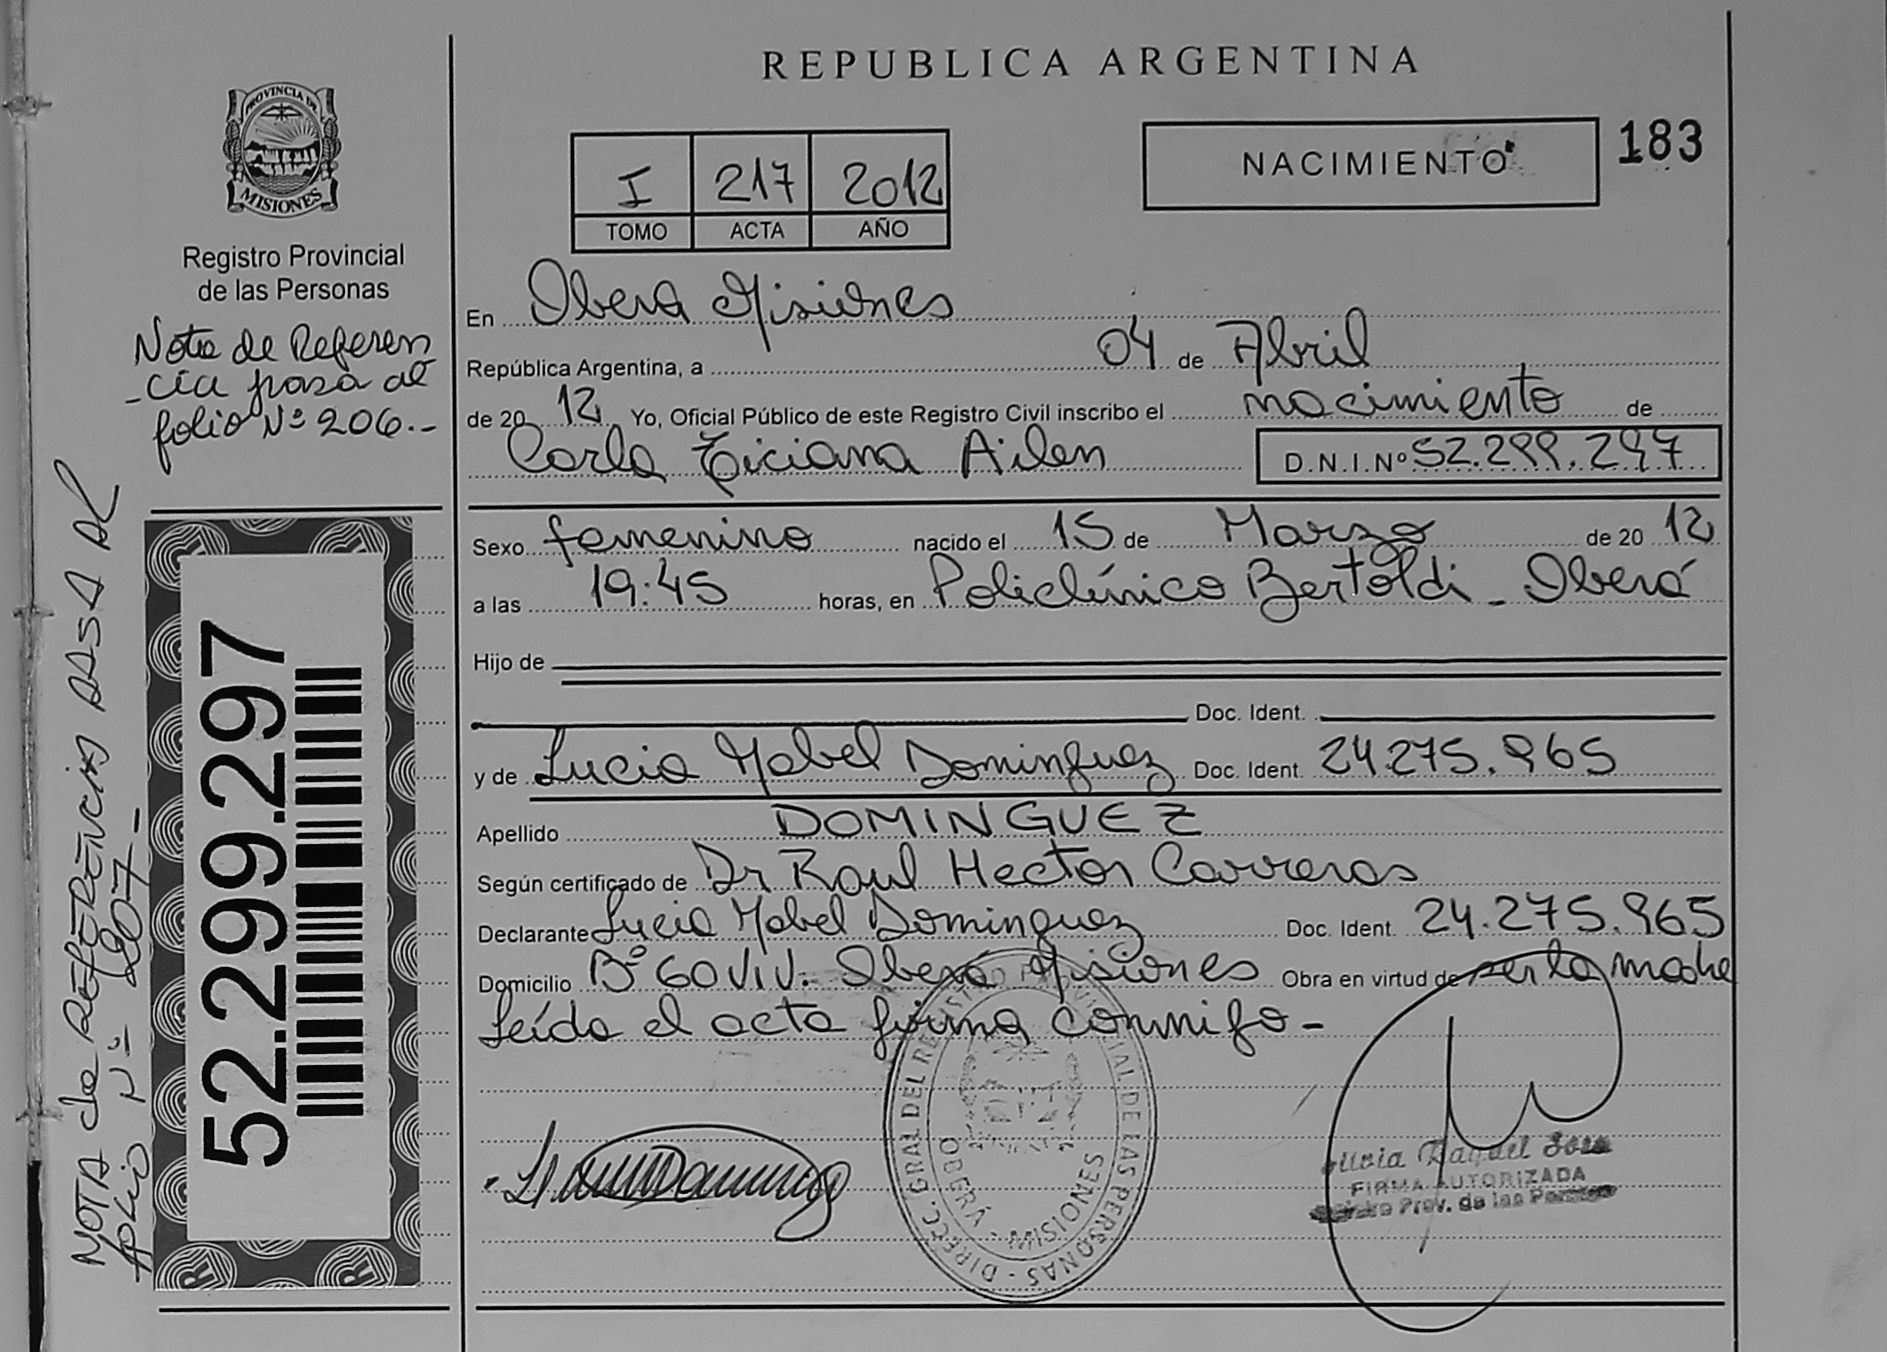 REPUBLICA ARGENTINA
PROVINCIA DE
MISIONES
Registro Provincial
de las Personas
Nota de Referen
-cia pasa al
folio Nº 206.-
NOTA de REFERENCIA PASA AL
FOLIO Nº 207-
52.299.297
I 217 2012
TOMO ACTA AÑO
NACIMIENTO
183
En Obera Misiones
República Argentina, a 04 de Abril
de 20 12 Yo, Oficial Público de este Registro Civil inscribo el nacimiento de
Carla Ticiana Ailen D.N.I.Nº 52.299.297
Sexo femenino nacido el 15 de Marzo de 20 12
a las 19:45 horas, en Policlínico Bertoldi - Oberá
Hijo de
Doc. Ident.
y de Lucia Mabel Dominguez Doc. Ident. 24.275.965
Apellido DOMINGUEZ
Según certificado de Dr Raul Hector Carreras
Declarante Lucia Mabel Dominguez Doc. Ident. 24.275.965
Domicilio Bº 60 VIV. Oberá Misiones Obra en virtud de ser la madre
Leída el acta firma conmigo-
DIRECC. GRAL DEL REGISTRO PROVINCIAL DE LAS PERSONAS -
OBERÁ - MISIONES
Raquel Sosa
FIRMA AUTORIZADA
Prov. de las Personas